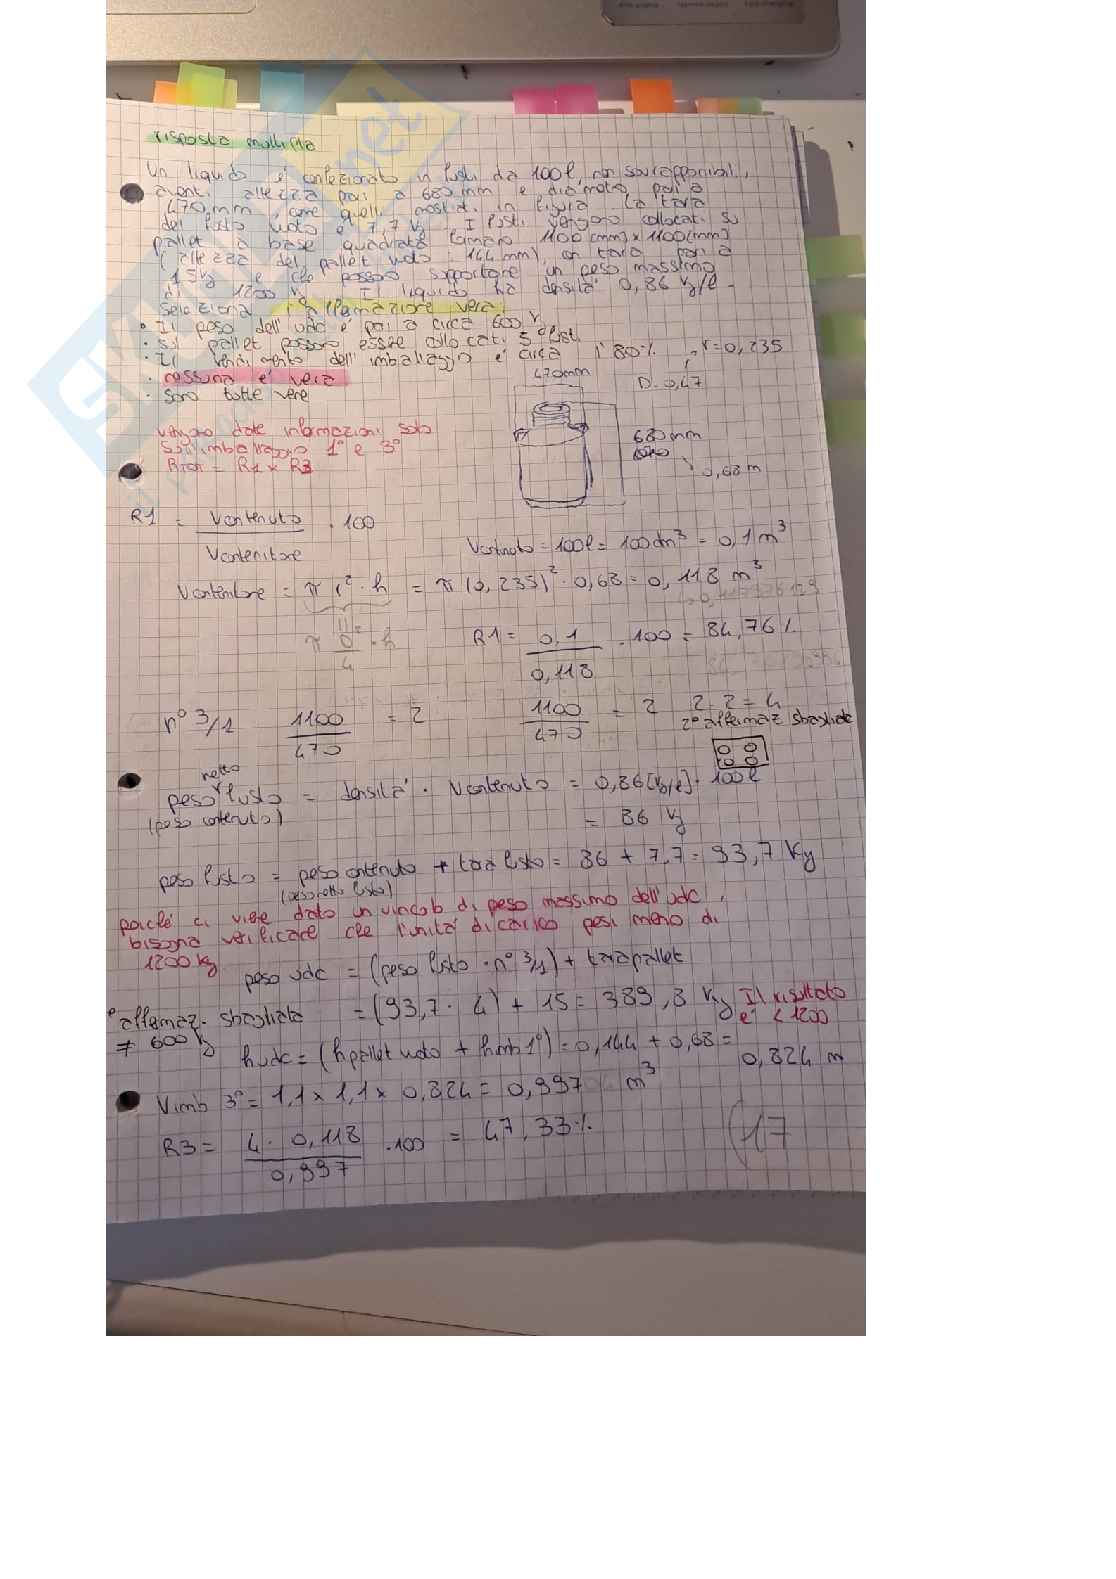 risposta multipla
Un liquido è confezionato in fusti da 100l, non sovrapponibili,
aventi altezza pari a 680mm e diametro pari a
470mm come quelli mostrati in figura. La tara
del fusto vuoto è 7,7 kg. I fusti vengono collocati su
pallet a base quadrata 1100 (mm) x 1100(mm)
(altezza del pallet vuoto: 144mm), con tara pari a
15kg e che possono supportare un peso massimo
di 1200 kg. Il liquido ha densità 0,86 kg/l.
Seleziona l'affermazione vera:
• Il peso dell'udc è pari a circa 600 kg
• sul pallet possono essere collocati 5 fusti
• Il rendimento dell'imballaggio è circa l'80%
• nessuna è vera
• sono tutte vere
r=0,235
D. 0,47
470mm
680mm
0,68m
vengono date informazioni solo
sull'imballaggio 1° e 3°
Rtot = R1 x R3
R1 = Vcontenuto / Vcontenitore · 100
Vcontenuto = 100l = 100dm³ = 0,1m³
Vcontenitore = π r² · h = π (0,235)² · 0,68 = 0,118 m³
π D²/4 · h
R1 = 0,1 / 0,118 · 100 = 84,76%
n° 3/1 1100/470 = 2 1100/470 = 2 2·2=4
2° affermaz sbagliata
netto
peso fusto = densità · Vcontenuto = 0,86[kg/l] · 100l
(peso contenuto) = 86 kg
peso fusto = peso contenuto + tara fusto = 86 + 7,7 = 93,7 kg
(peso netto fusto)
poiché ci viene dato un vincolo di peso massimo dell'udc,
bisogna verificare che l'unità di carico pesi meno di
1200 kg
peso udc = (peso fusto · n° 3/1) + tara pallet
affermaz. sbagliata = (93,7 · 4) + 15 = 389,8 kg Il risultato
≠ 600 kg è < 1200
h udc = (h pallet vuoto + h imb 1°) = 0,144 + 0,68 =
0,824 m
Vimb 3° = 1,1 x 1,1 x 0,824 = 0,997 m³
R3 = 4 · 0,118 / 0,997 · 100 = 47,33%
17